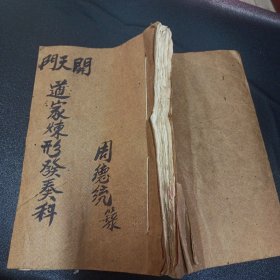 開天門
道家煉形發奏科
周德統籙